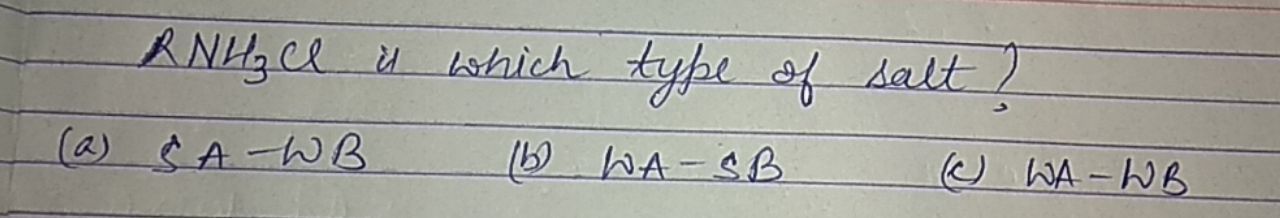 RNH₃Cl is which type of salt?
(a) SA-WB (b) WA-SB (c) WA-WB